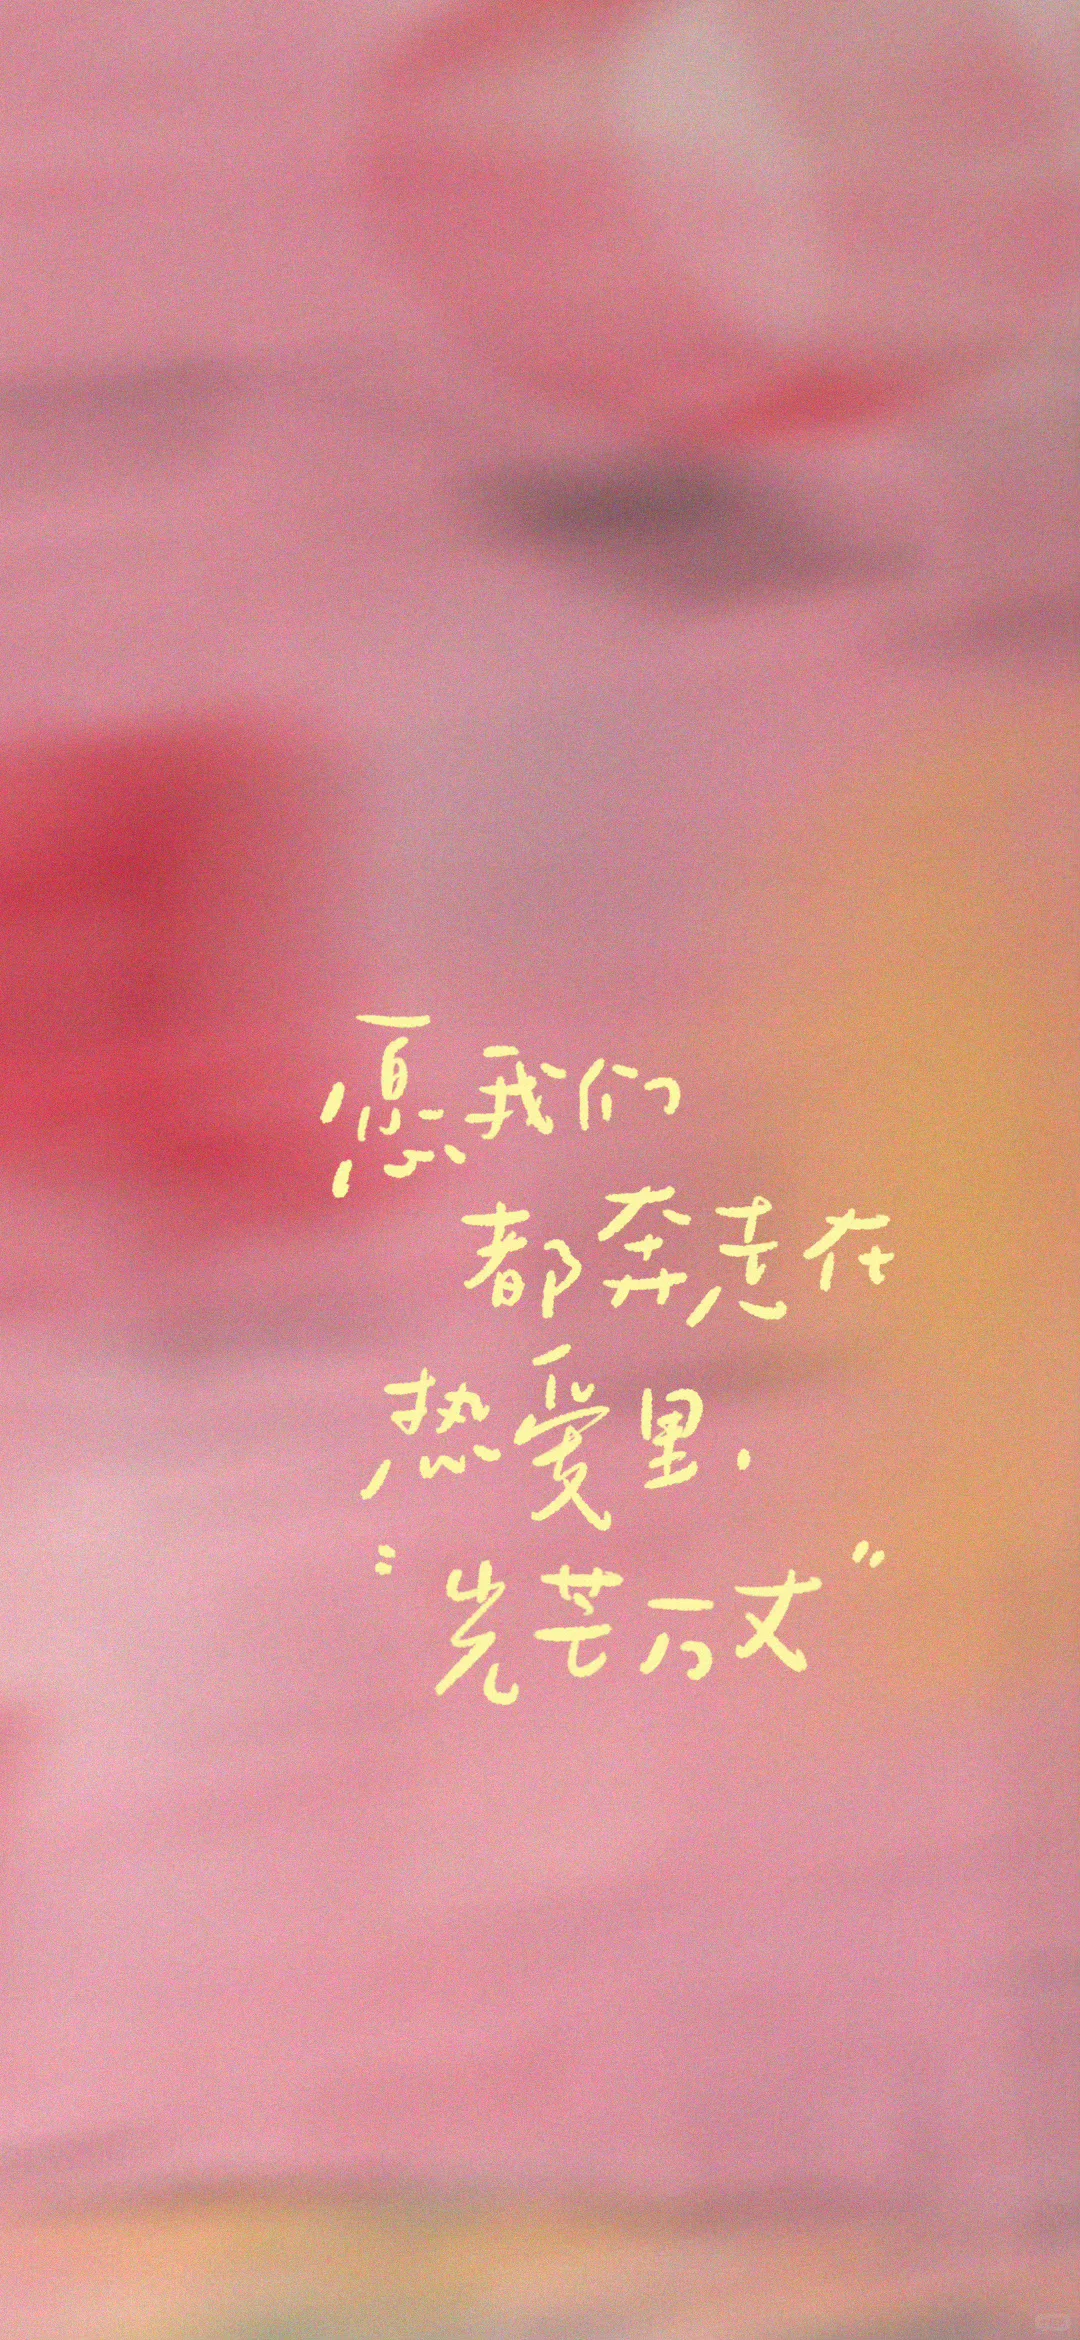 愿我们
都奔走在
热爱里，
“光芒万丈”